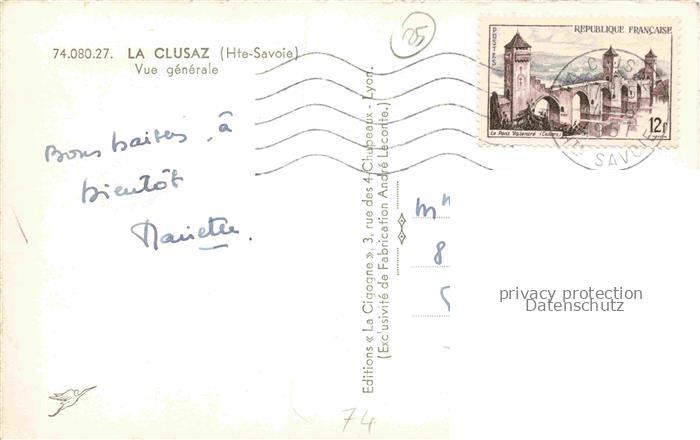 74.080.27. LA CLUSAZ (Hte-Savoie)
Vue générale
25
POSTES
REPUBLIQUE FRANÇAISE
Le Pont Valentré (Cahors)
12f
SAVOIE
Bons baisers à
bientôt
Mariette.
Editions « La Cigogne », 3, rue des 4-Chapeaux - Lyon.
(Exclusivité de Fabrication André Leconte.)
Mme
8
privacy protection
Datenschutz
74